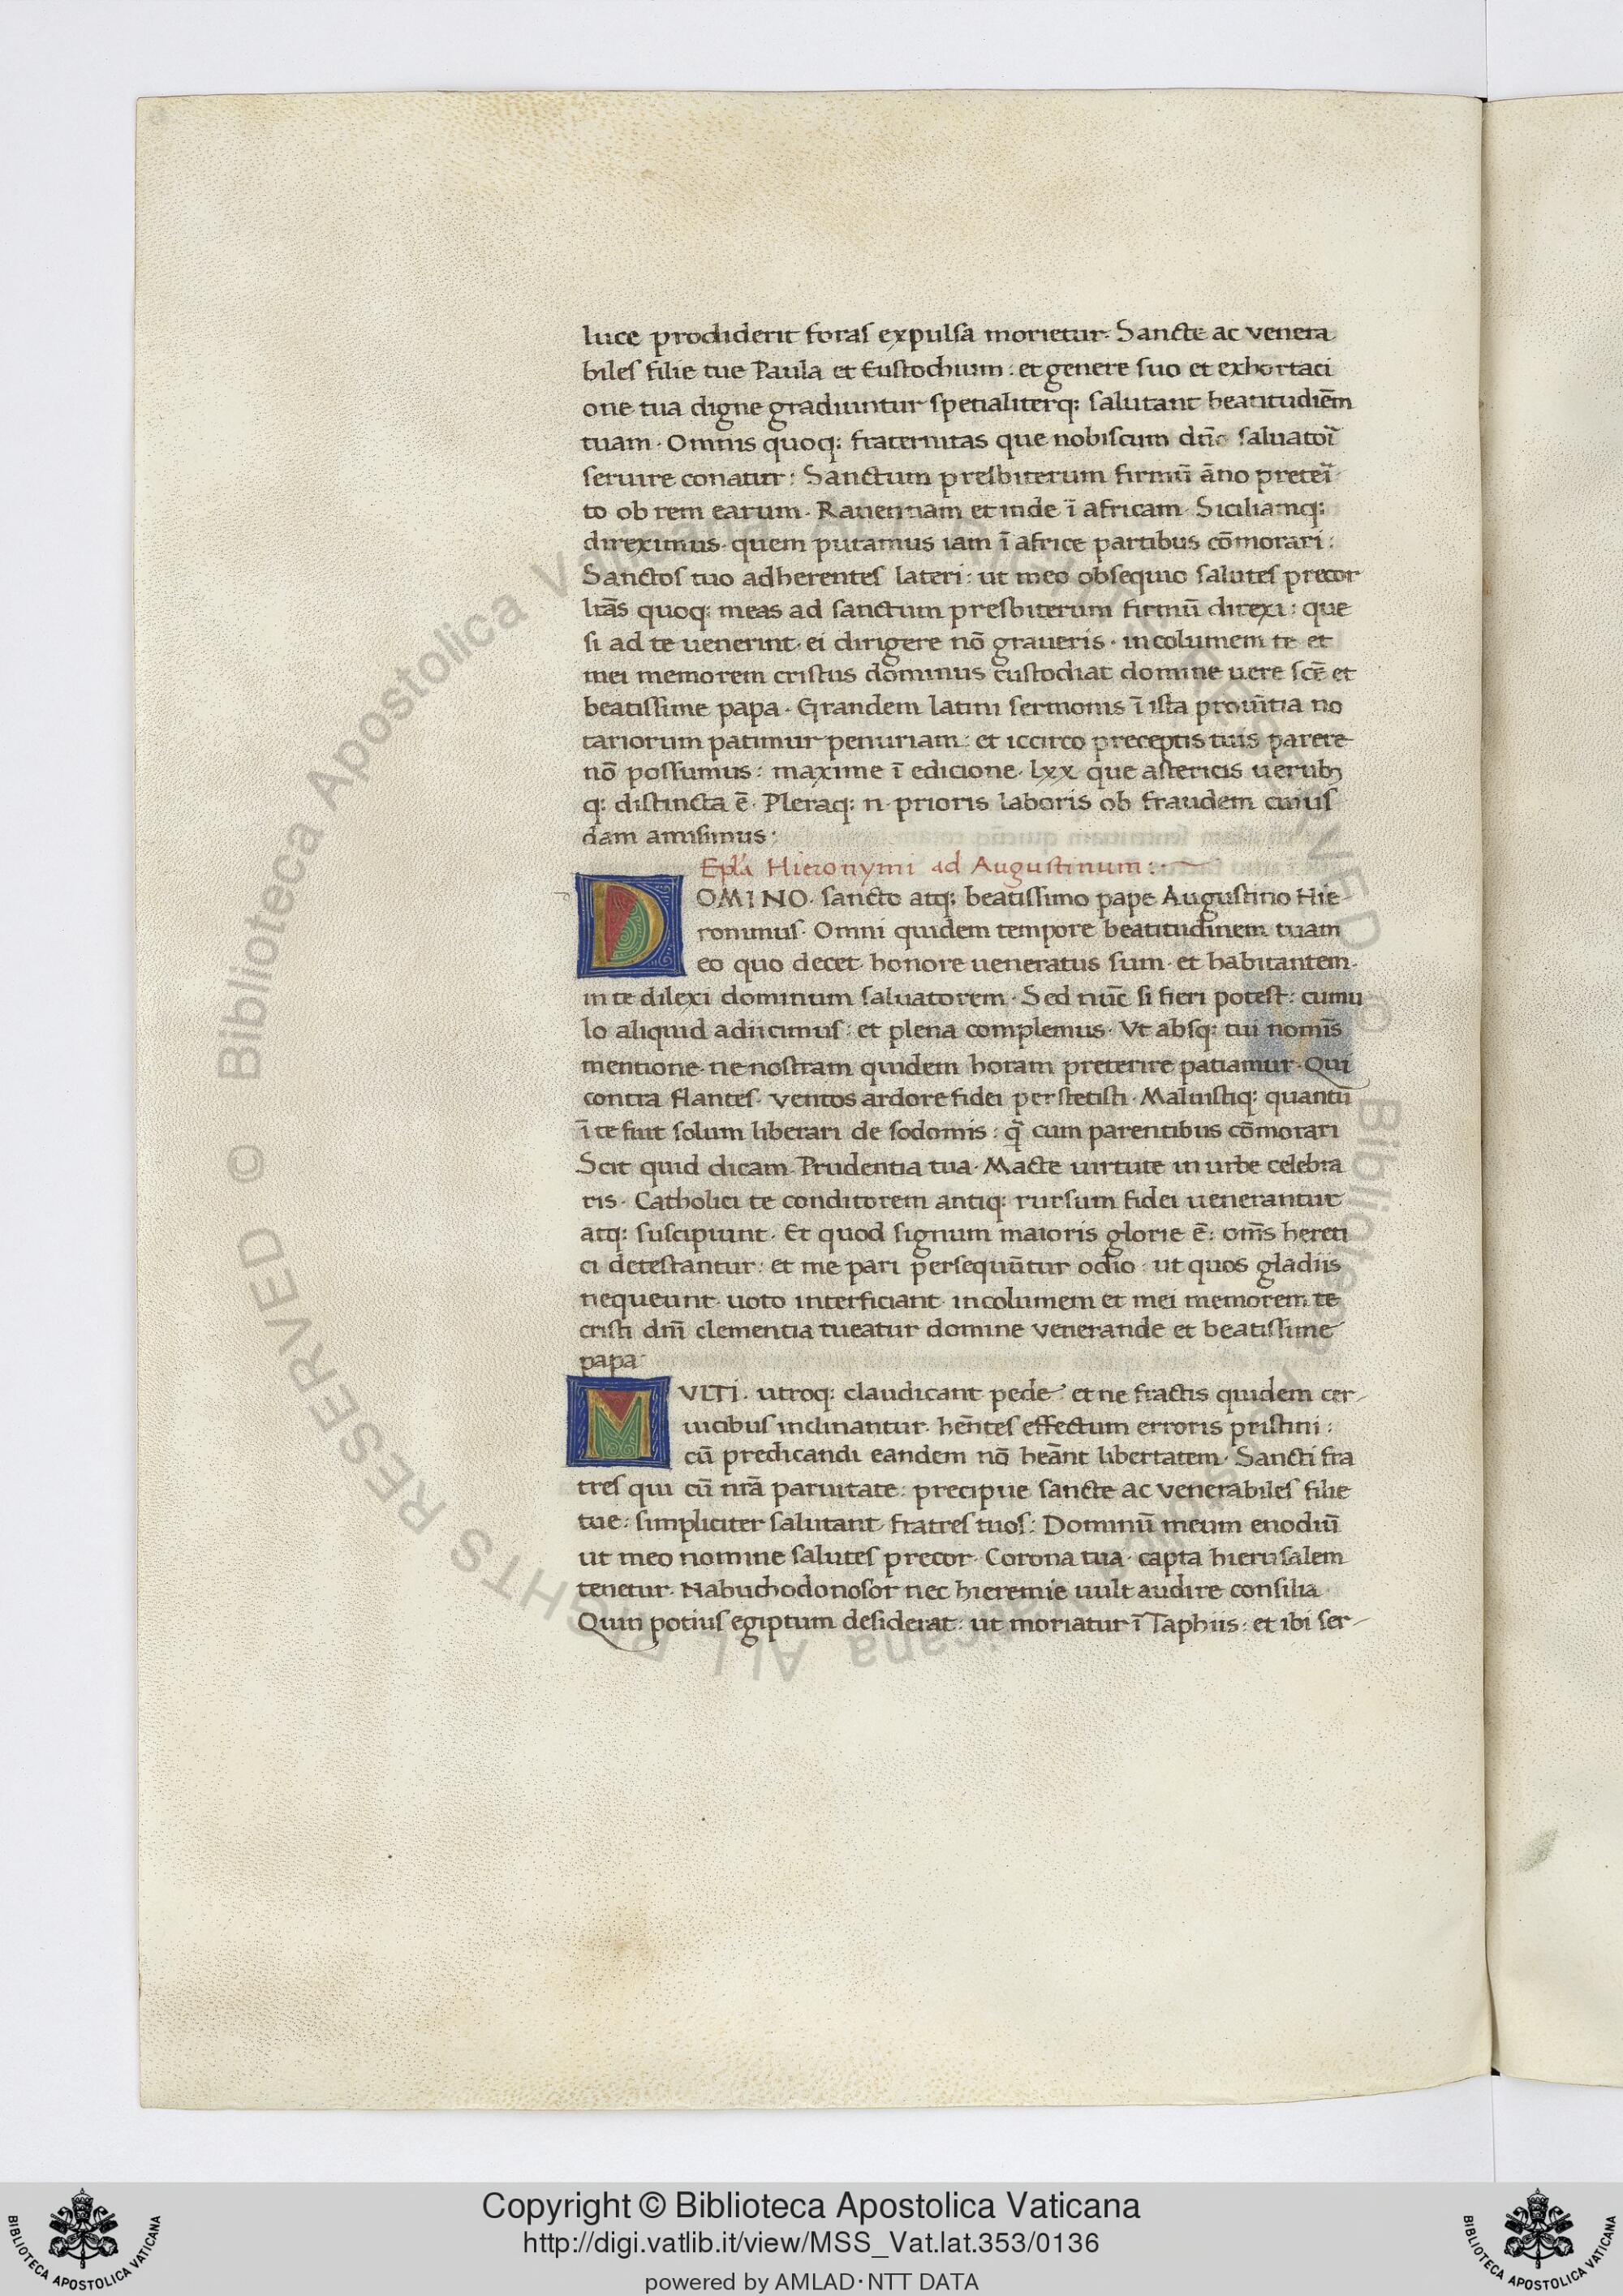 luce prodiderit foras expulsa morietur. Sancte ac venera
biles filie tue Paula et Eustochium: et genere suo et exhortaci
one tua digne gradiuntur spetialiterq: salutant beatitudiēm
tuam. Omnis quoq: fraternitas que nobiscum dn̄o saluatoī
seruire conatur: Sanctum presbiterum firmū āno preteī
to ob rem earum. Rauennam et inde ī africam. Siciliamq:
direximus. quem putamus iam ī africe partibus cōmorari:
Sanctos tuo adherentes lateri: ut meo obsequio salutes precor
lr̄as quoq: meas ad sanctum presbiterum firmū direxi: que
si ad te uenerint. ei dirigere nō graueris. incolumem te et
mei memorem cristus dominus custodiat domine uere scē et
beatissime papa. Grandem latini sermonis ī ista prouītia no
tariorum patimur penuriam: et iccirco preceptis tuis parere
nō possumus: maxime ī edicione. lxx que astericis uerubꝫ
q: distincta ē. Pleraq: n. prioris laboris ob fraudem cuius
dam amisimus:
Epl'a Hieronymi ad Augustinum:
DOMINO. sancto atq: beatissimo pape Augustino Hie-
ronimus. Omni quidem tempore beatitudinem tuam
eo quo decet honore ueneratus sum. et habitantem.
in te dilexi dominum saluatorem. Sed nūc si fieri potest: cumu
lo aliquid adiicimus: et plena complemus. Vt absq: tui nomīs
mentione. ne nostram quidem horam preterire patiamur. Qui
contra flantes. ventos ardore fidei perstetisti. Maluistiq: quantū
ī te fuit solum liberari de sodomis: q̄ cum parentibus cōmorari
Scit quid dicam. Prudentia tua. Macte uirtute in urbe celebra
ris. Catholici te conditorem antiq: rursum fidei uenerantur
atq: suscipiunt. Et quod signum maioris glorie ē: om̄s hereti
ci detestantur: et me pari persequūtur odio: ut quos gladiis
nequeunt. uoto interficiant. incolumem et mei memorem te
cristi dn̄i clementia tueatur domine venerande et beatissime
papa
MVLTI. utroq: claudicant pede: et ne fractis quidem cer-
uicibus inclinantur. hēntes effectum erroris pristini:
cū predicandi eandem nō heānt libertatem. Sancti fra
tres qui cū nr̄a paruitate: precipue sancte ac venerabiles filie
tue: simpliciter salutant. fratres tuos: Dominū meum enodiū
ut meo nomine salutes precor. Corona tua. capta hierusalem
tenetur. Nabuchodonosor nec hieremie uult audire consilia.
Quin potius egiptum desiderat: ut moriatur ī Taphiis: et ibi ser-
© Biblioteca Apostolica Vaticana ALL RIGHTS RESERVED
Copyright © Biblioteca Apostolica Vaticana
http://digi.vatlib.it/view/MSS_Vat.lat.353/0136
powered by AMLAD·NTT DATA
BIBLIOTECA APOSTOLICA VATICANA
BIBLIOTECA APOSTOLICA VATICANA